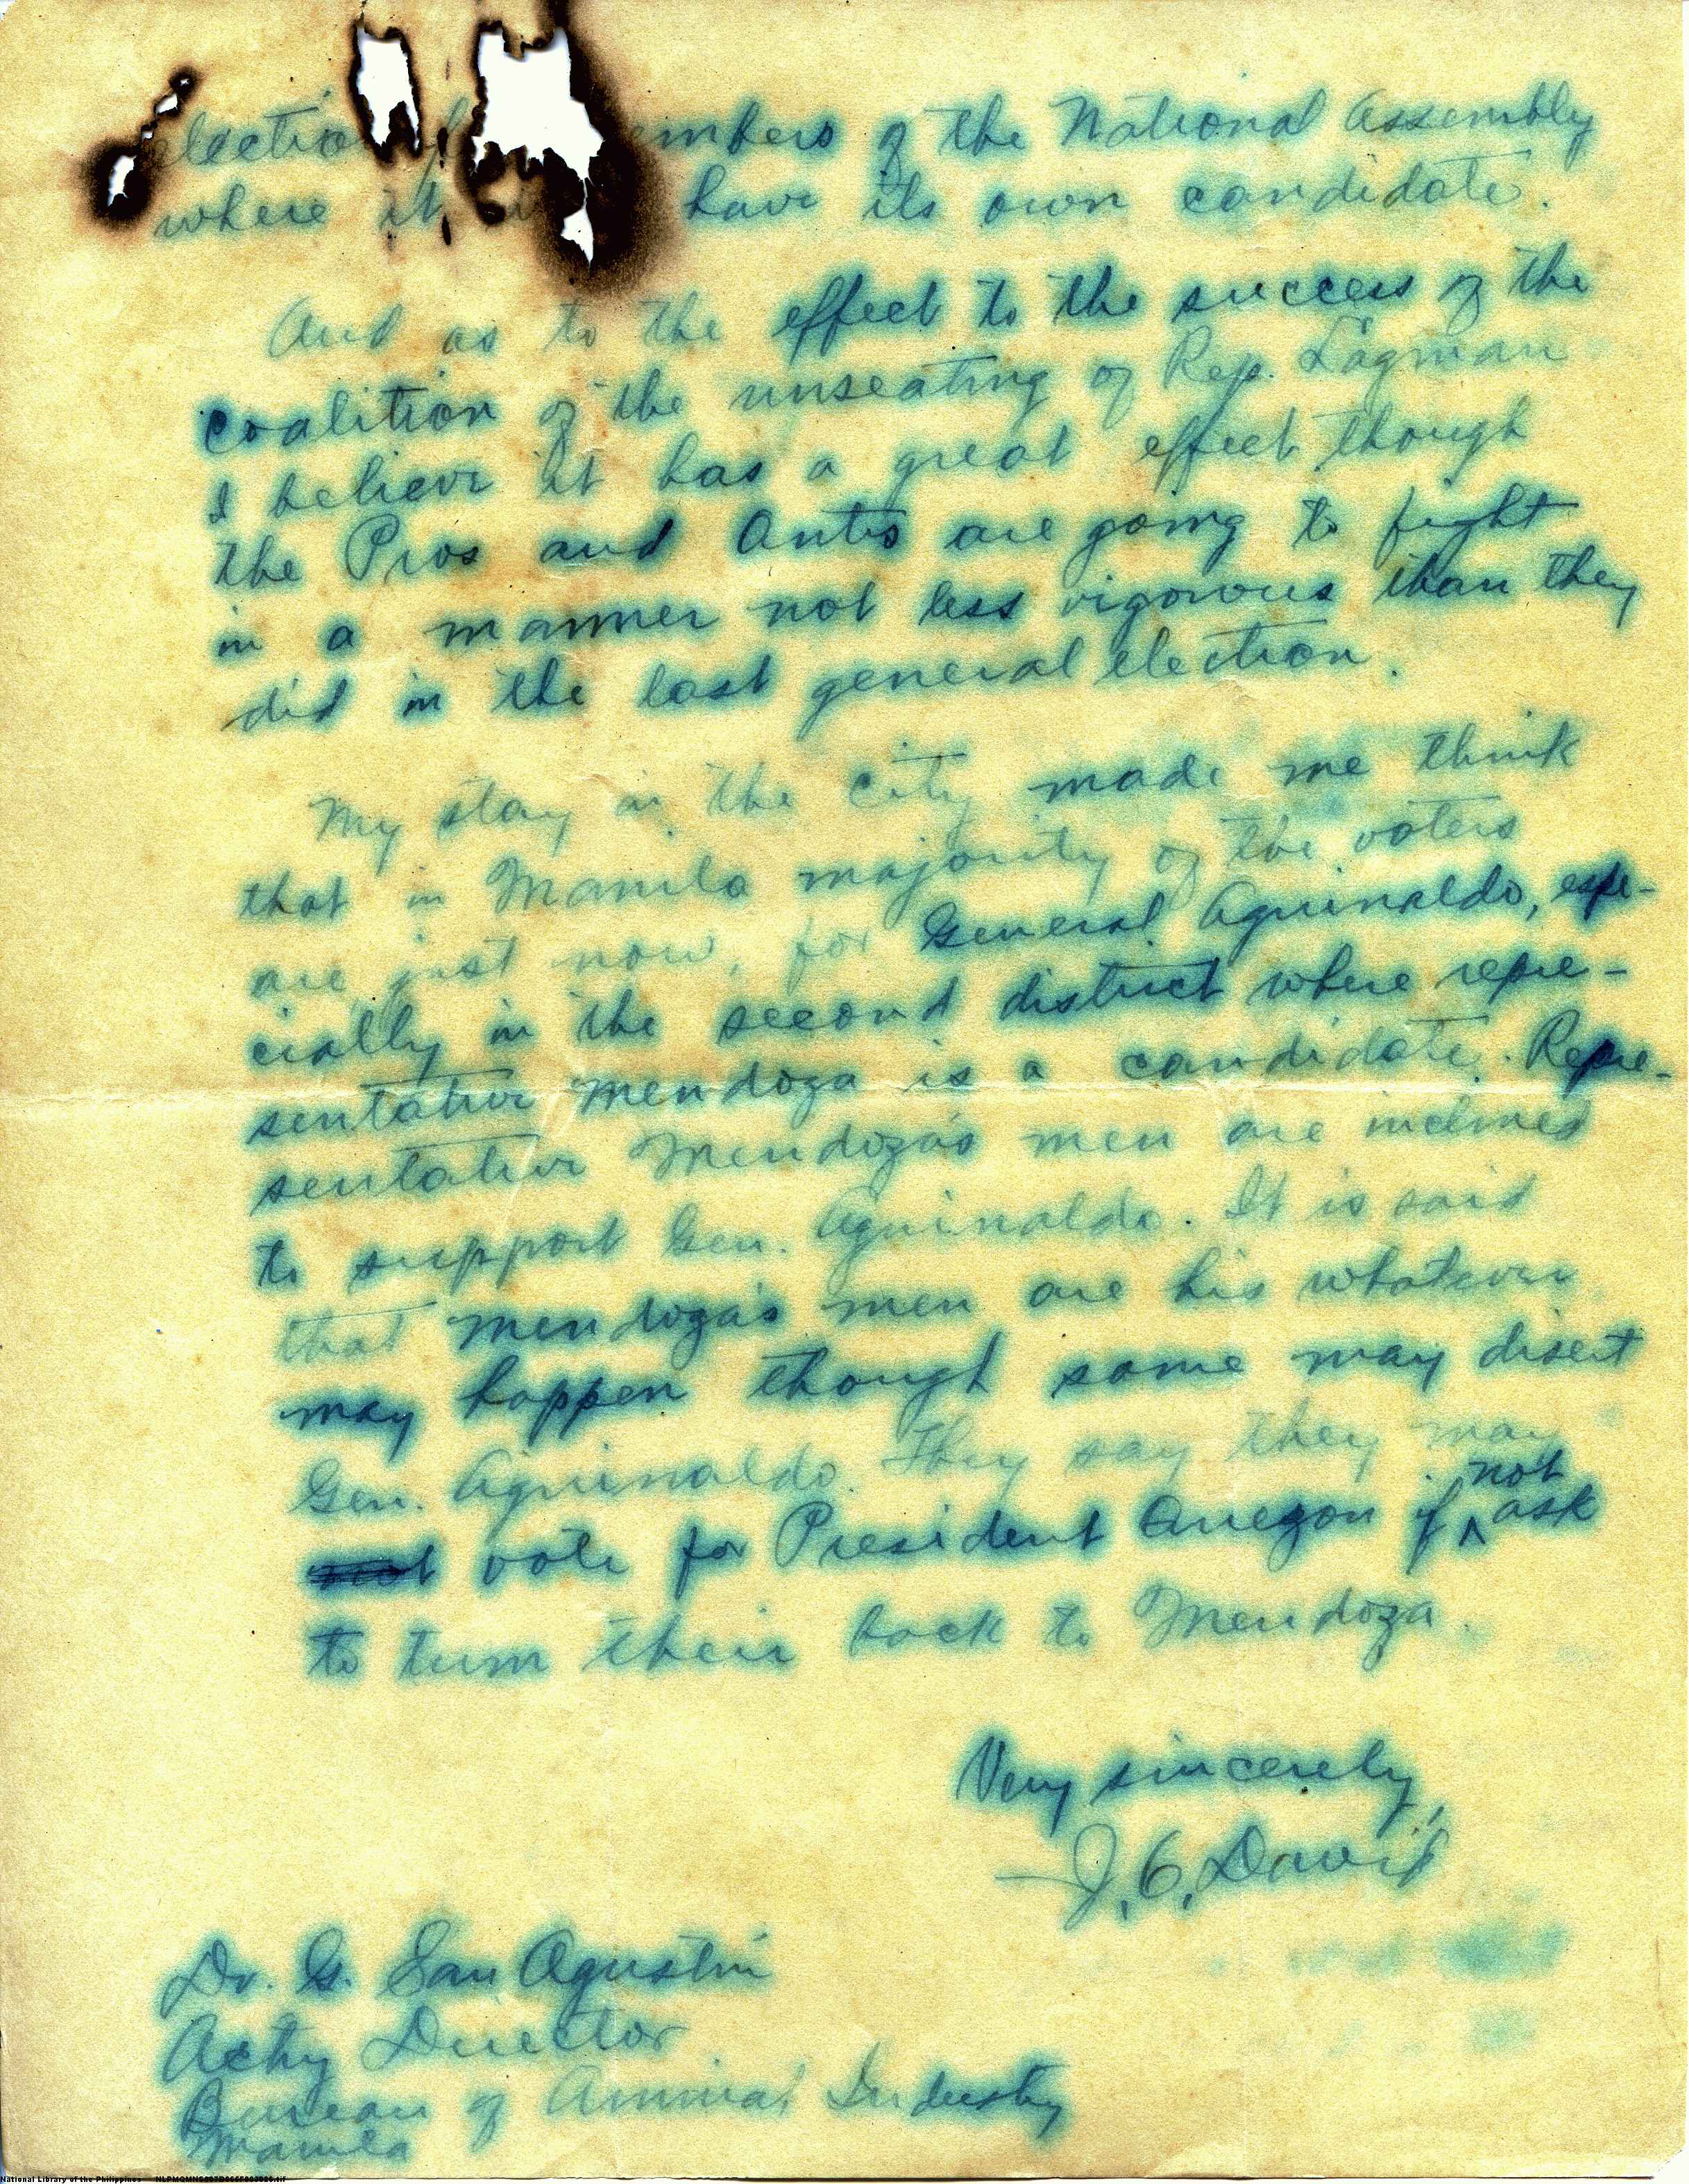 election for members of the National Assembly
where it have its own candidate.
And as to the effect to the success of the
coalition of the unseating of Rep. Lagman
I believe it has a great effect though
the Pros and Antis are going to fight
in a manner not less vigorous than they
did in the last general election.
My stay in the city made me think
that in Manila majority of the voters
are just now, for General Aguinaldo, espe-
cially in the second district where repre-
sentative Mendoza is a candidate. Repre-
sentative Mendoza's men are inclined
to support Gen. Aguinaldo. It is said
that Mendoza's men are his whatever
may happen though some may disert
Gen. Aguinaldo. They say they may
not
vote for President Quezon if ask
to turn their back to Mendoza.
Very sincerely,
J. C. David
Dr. G. San Agustin
Actng Director
Bureau of Animal Industry
Manila
National Library of the Philippines